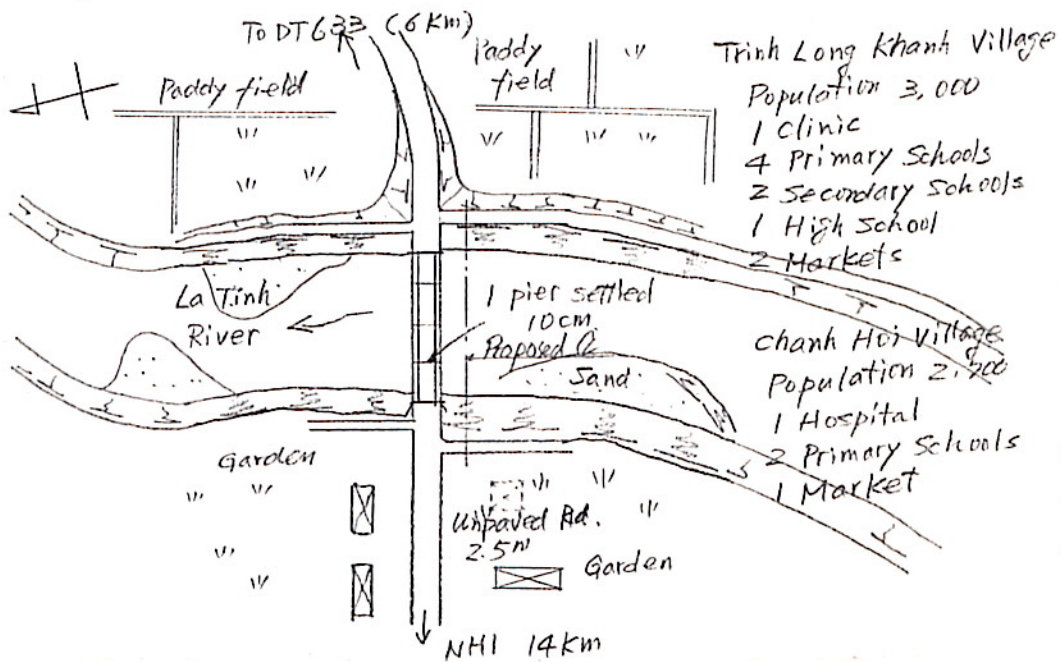 To DT633 (6 Km)
Paddy field
Paddy
field
Trinh Long Khanh Village
Population 3,000
1 Clinic
4 Primary Schools
2 Secondary Schools
1 High School
2 Markets
La Tinh
River
1 pier settled
10 cm
Proposed
Sand
Chanh Hoi Village
Population
1 Hospital
2 Primary Schools
1 Market
Garden
Unpaved Rd.
2.5m
Garden
NH1 14Km